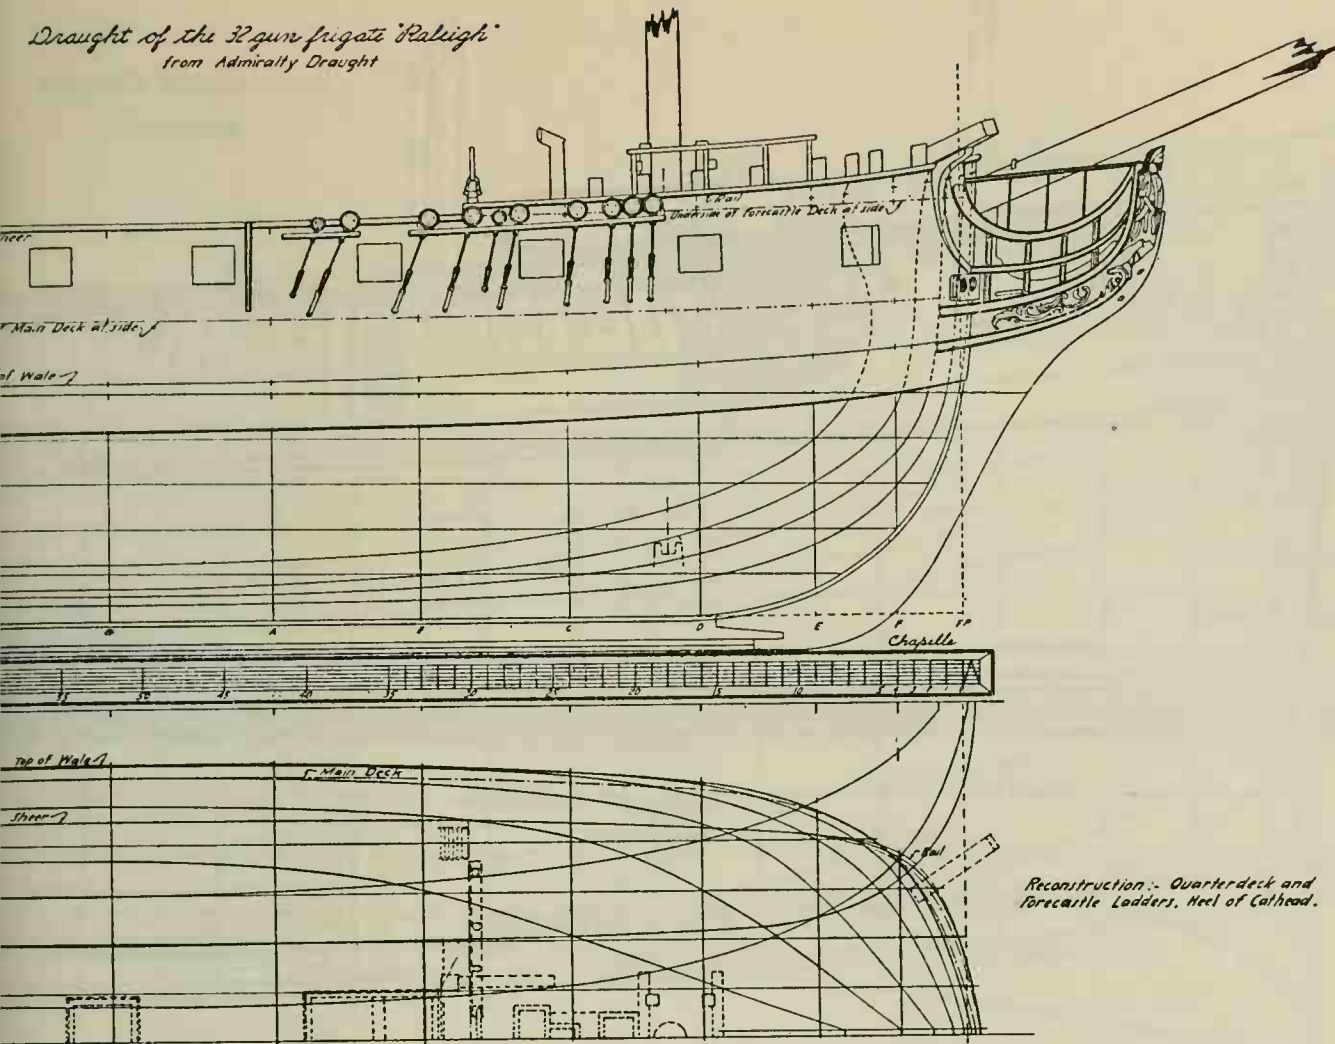 Draught of the 32 gun frigate "Raleigh"
from Admiralty Draught
Rail
Underside of Forecastle Deck at side
Sheer
Main Deck at side
of Wale
A B C D E F F.P.
Chapelle
55 50 45 40 35 30 25 20 15 10 5
Top of Wale
Main Deck
Sheer
Rail
Reconstruction:- Quarterdeck and
Forecastle Ladders, Heel of Cathead.